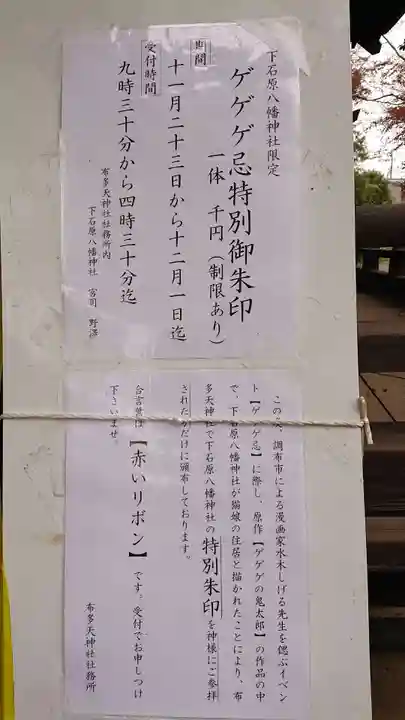 下石原八幡神社限定
ゲゲゲ忌特別御朱印
一体　千円（制限あり）
期間
十一月二十三日から十二月一日迄
受付時間
九時三十分から四時三十分迄
布多天神社社務所内
下石原八幡神社　宮司　野澤
この度、調布市による漫画家水木しげる先生を偲ぶイベン
ト【ゲゲゲ忌】に際し、原作【ゲゲゲの鬼太郎】の作品の中
で、下石原八幡神社が猫娘の住居と描かれたことにより、布
多天神社で下石原八幡神社の特別朱印を神様にご参拝
されたかだけに頒布しております。
合言葉は【赤いリボン】です。受付でお申しつけ
下さいませ。
布多天神社社務所